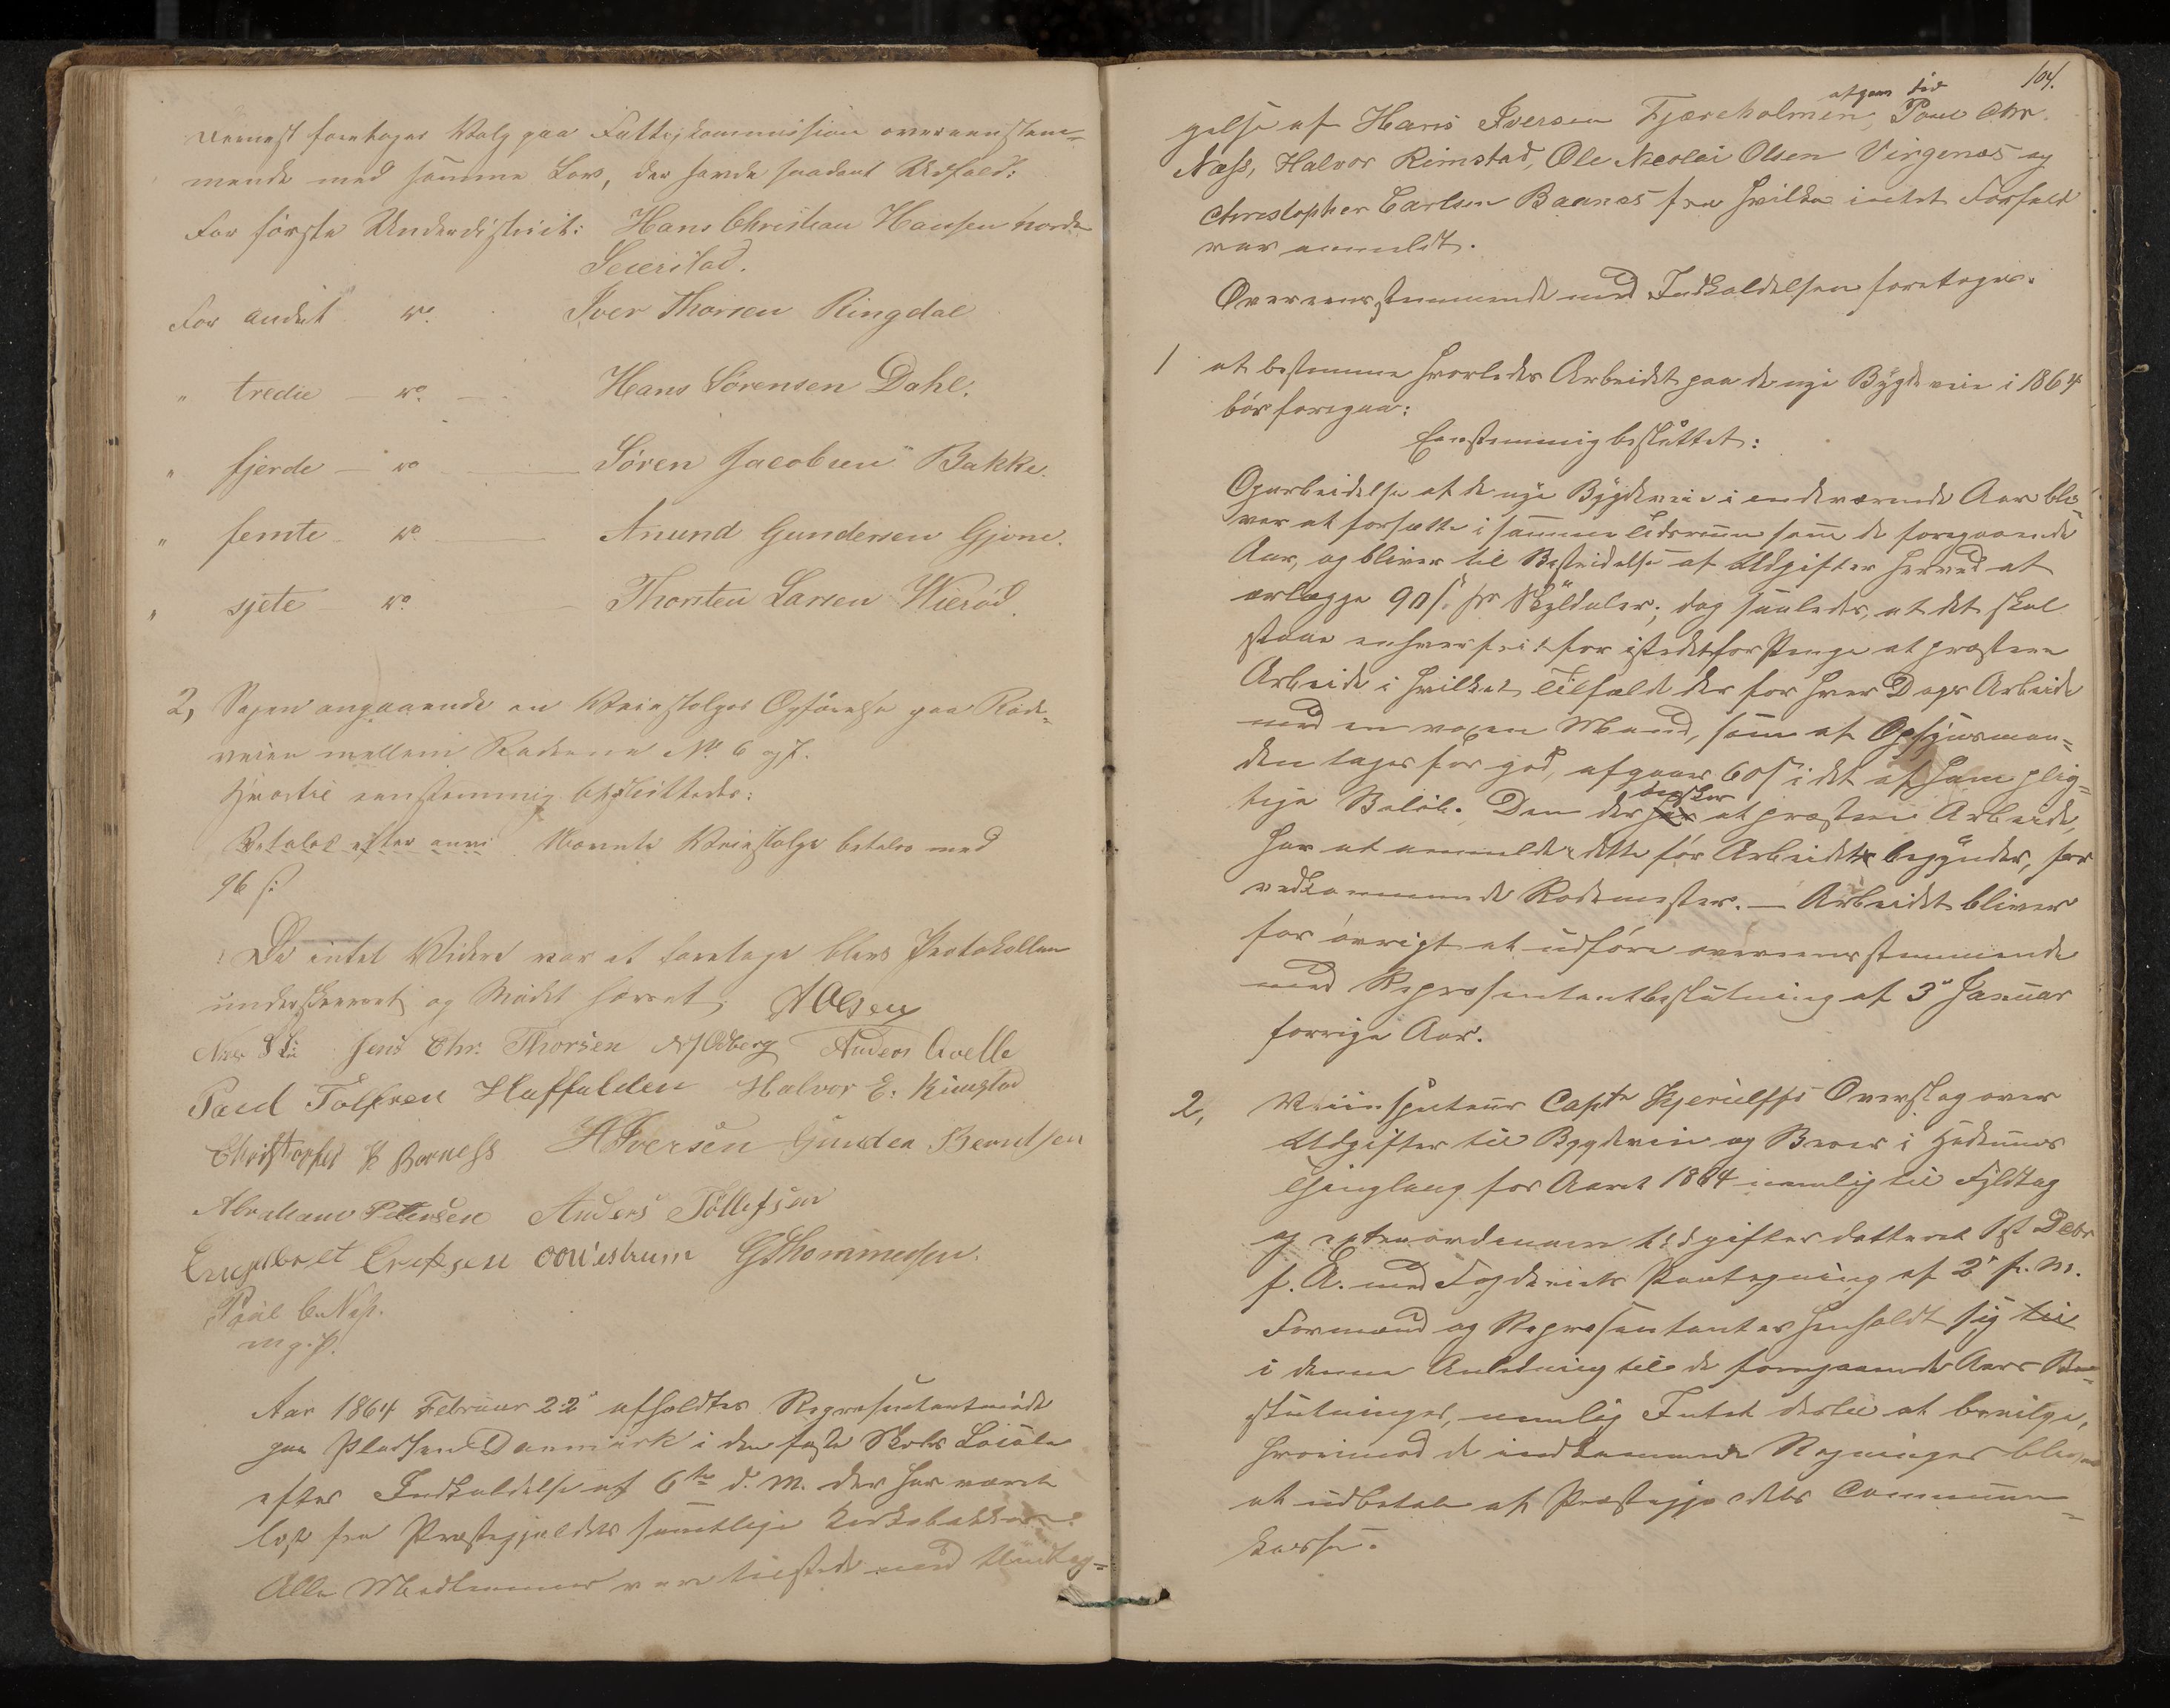 Dernæst foretoges Valg paa Fattigkommission overeenstem-
mende med samme Lov, der havde saadant Udfald:
For første Underdistrict: Hans Christian Hansen nordre
Seierstad.
For andet do Iver Thorsen Ringdal
" tredie – do – Hans Sørensen Dahl.
" fjerde – do – Søren Jacobsen Bakke.
" femte – do – Anund Gundersen Gjone.
" sjete – do – Thorsten Larsen Wierød.
2, Sagen angaaende en Veistolpes Opførelse paa Rode-
veien mellem Roderne No 6 og 7.
Hvortil eenstemmig besluttedes:
Betales efter Nævnte Veistolpe betales med
96 s:
Da intet Videre var at foretage blev Protokollen
underskrevet og Mødet hævet, AOlsen
Jens Chr. Thorsen Anders Qvelle
Paul Tolfsen Halvor E. Rimstad
Christopher K Borness HIversen Gunder Berntsen
Abraham Petersen Anders Tollefsen
Engelbret Eriksen GThommesen.
Paul C. Næss.
m.g.P.
Aar 1864 Februar 22de afholdtes Repræsentantmøde
paa Pladsen Danmark i den faste Skoles Locale
efter Indkaldelse af 6te d. M. der har været
læst fra Præstegjeldets samtlige Kirkebakker.
Alle Medlemmer vare tilstede med Undtag-
104.
gelse af Hans Iversen Fjæreholmen, Poul Chr.
Næss, Halvor Rimstad, Ole Nicolai Olsen Virgenæs og
Christopher Carlsen Baanes fra hvilke intet Forfald
var anmeldt.
Overeensstemmende med Indkaldelsen foretoges:
1 at bestemme hvorledes Arbeidet paa de nye Bygdeveie i 1864
bør foregaa:
Eenstemmig besluttet:
Oparbeidelse af de nye Bygdeveie i indeværende Aar bli-
ver at fortsætte i samme Udstrækning som de foregaaende
Aar, og bliver til Bestridelse af Udgifter herved at
erlægge 90 s. pr Skylddaler; dog saaledes, at det skal
staae enhver frit for istedetfor Penge at præstere
Arbeide i hvilket Tilfælde der for hver Dags Arbeide
med en voxen Mand, som af Opsynsman-
den tages for god, afgaaer 60 s i det af ham plig-
tige Beløb. Den der ønsker at præstere Arbeide,
har at anmelde dette før Arbeidet begynder, for
vedkommende Rodemester. – Arbeidet bliver
for øvrigt at udføre overeensstemmende
med Repræsentantbeslutning af 3de Januar
forrige Aar.
2, Veiinspecteur Capt Kjerulffs Overslag over
Udgifter til Bygdeveie og Broer i Hedrums
Thinglaug for Aaret 1864 nemlig til Fyldtag
og extraordinære Udgifter datteret 1st Debr
f. A. med Fogderiets Paategning af 2de f. M.
Formænd og Repræsentanter henholdt sig til
i denne Anledning til de foregaaende Aars Be-
slutninger, nemlig Intet dertil at bevilge,
hvorimod de indkommende Regninger bliver
at udbetale af Præstegjeldets Commune-
kasse.